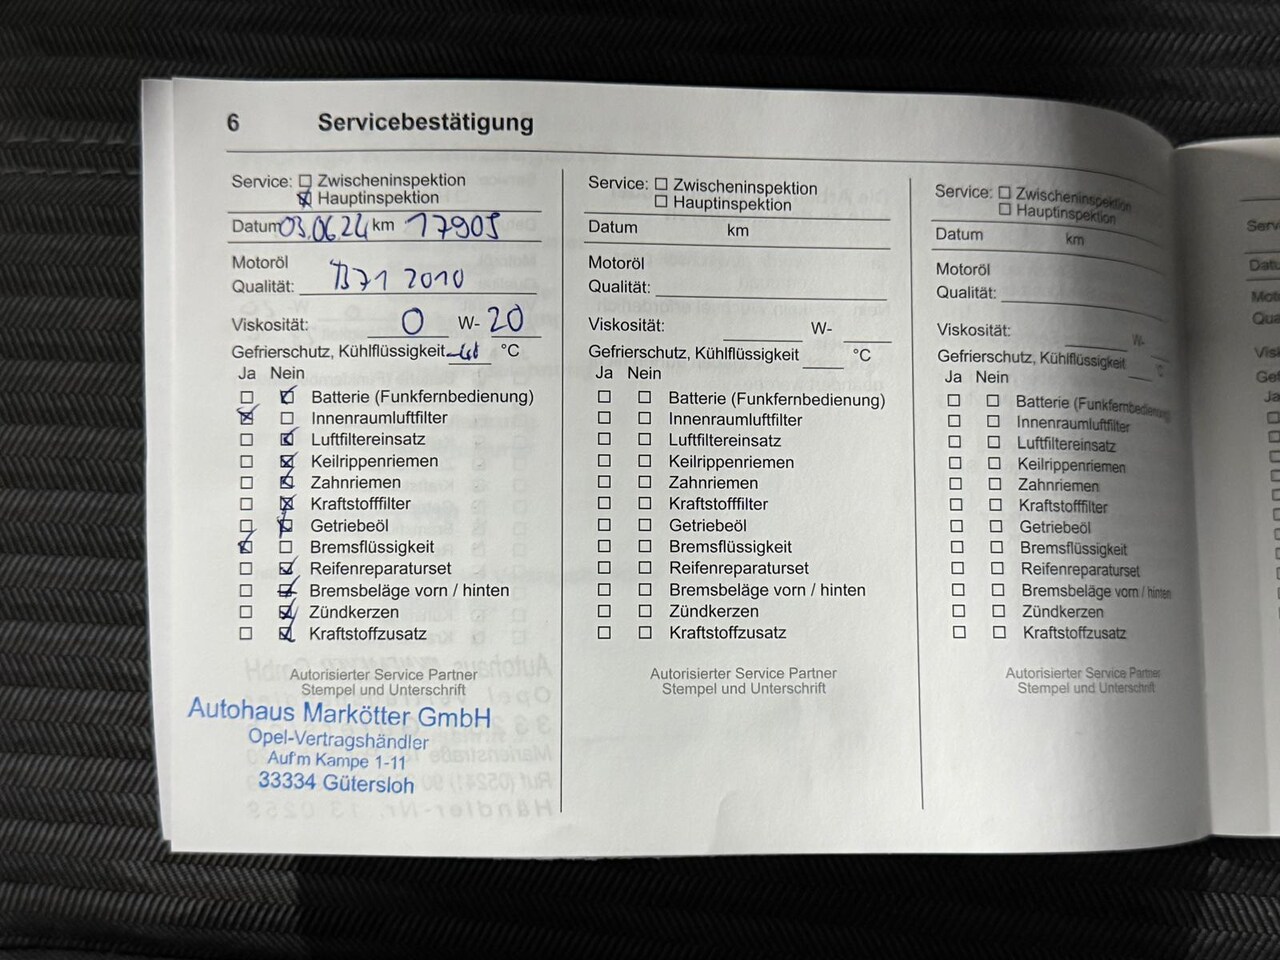 6 Servicebestätigung
Service: Zwischeninspektion
Hauptinspektion
Datum 03.06.24 km 17905
Motoröl
Qualität: B71 2010
Viskosität: 0 W- 20
Gefrierschutz, Kühlflüssigkeit °C
Ja Nein
Batterie (Funkfernbedienung)
Innenraumluftfilter
Luftfiltereinsatz
Keilrippenriemen
Zahnriemen
Kraftstofffilter
Getriebeöl
Bremsflüssigkeit
Reifenreparaturset
Bremsbeläge vorn / hinten
Zündkerzen
Kraftstoffzusatz
Autorisierter Service Partner
Stempel und Unterschrift
Autohaus Markötter GmbH
Opel-Vertragshändler
Auf'm Kampe 1-11
33334 Gütersloh
Service: Zwischeninspektion
Hauptinspektion
Datum km
Motoröl
Qualität:
Viskosität: W-
Gefrierschutz, Kühlflüssigkeit °C
Ja Nein
Batterie (Funkfernbedienung)
Innenraumluftfilter
Luftfiltereinsatz
Keilrippenriemen
Zahnriemen
Kraftstofffilter
Getriebeöl
Bremsflüssigkeit
Reifenreparaturset
Bremsbeläge vorn / hinten
Zündkerzen
Kraftstoffzusatz
Autorisierter Service Partner
Stempel und Unterschrift
Service: Zwischeninspektion
Hauptinspektion
Datum km
Motoröl
Qualität:
Viskosität: W-
Gefrierschutz, Kühlflüssigkeit °C
Ja Nein
Batterie (Funkfernbedienung)
Innenraumluftfilter
Luftfiltereinsatz
Keilrippenriemen
Zahnriemen
Kraftstofffilter
Getriebeöl
Bremsflüssigkeit
Reifenreparaturset
Bremsbeläge vorn / hinten
Zündkerzen
Kraftstoffzusatz
Autorisierter Service Partner
Stempel und Unterschrift